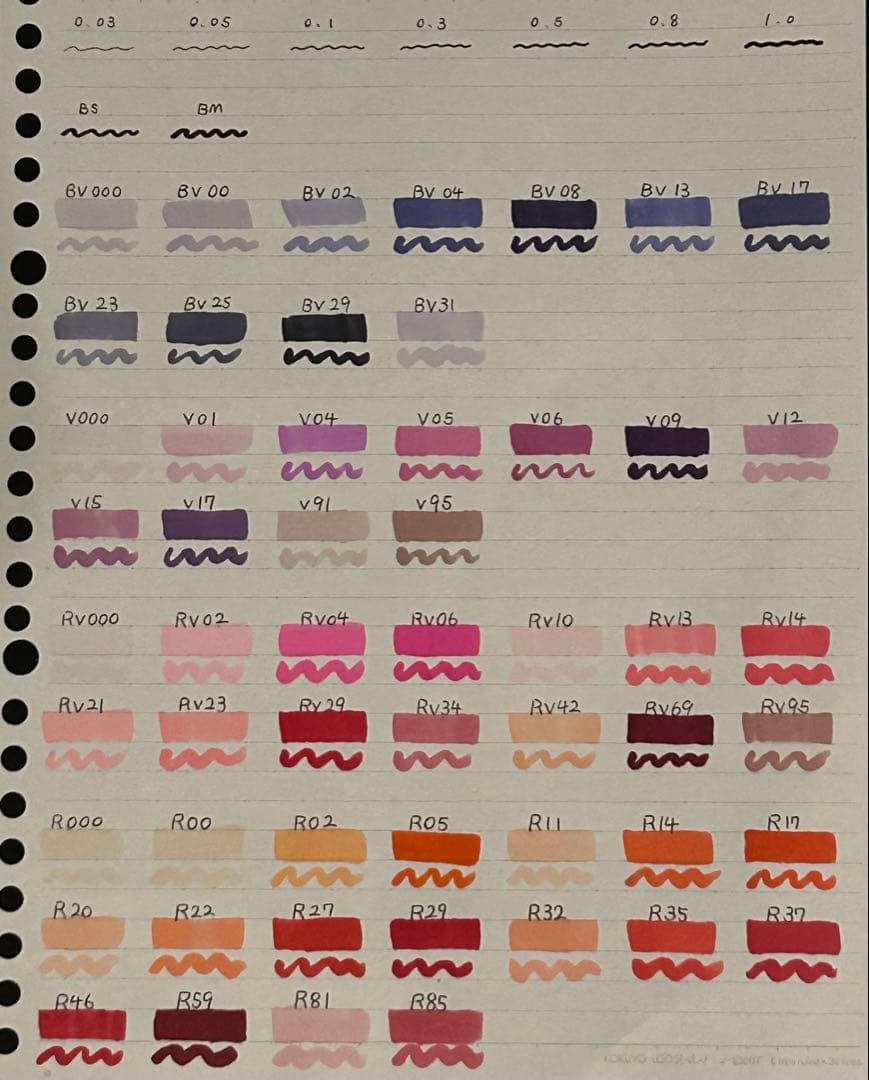 0.03 0.05 0.1 0.3 0.5 0.8 1.0
BS BM
BV000 BV00 BV02 BV04 BV08 BV13 BV17
BV23 BV25 BV29 BV31
V000 V01 V04 V05 V06 V09 V12
V15 V17 V91 V95
RV000 RV02 RV04 RV06 RV10 RV13 RV14
RV21 RV23 RV29 RV34 RV42 RV69 RV95
R000 R00 R02 R05 R11 R14 R17
R20 R22 R27 R29 R32 R35 R37
R46 R59 R81 R85
KOKUYO LOOSE-LEAF